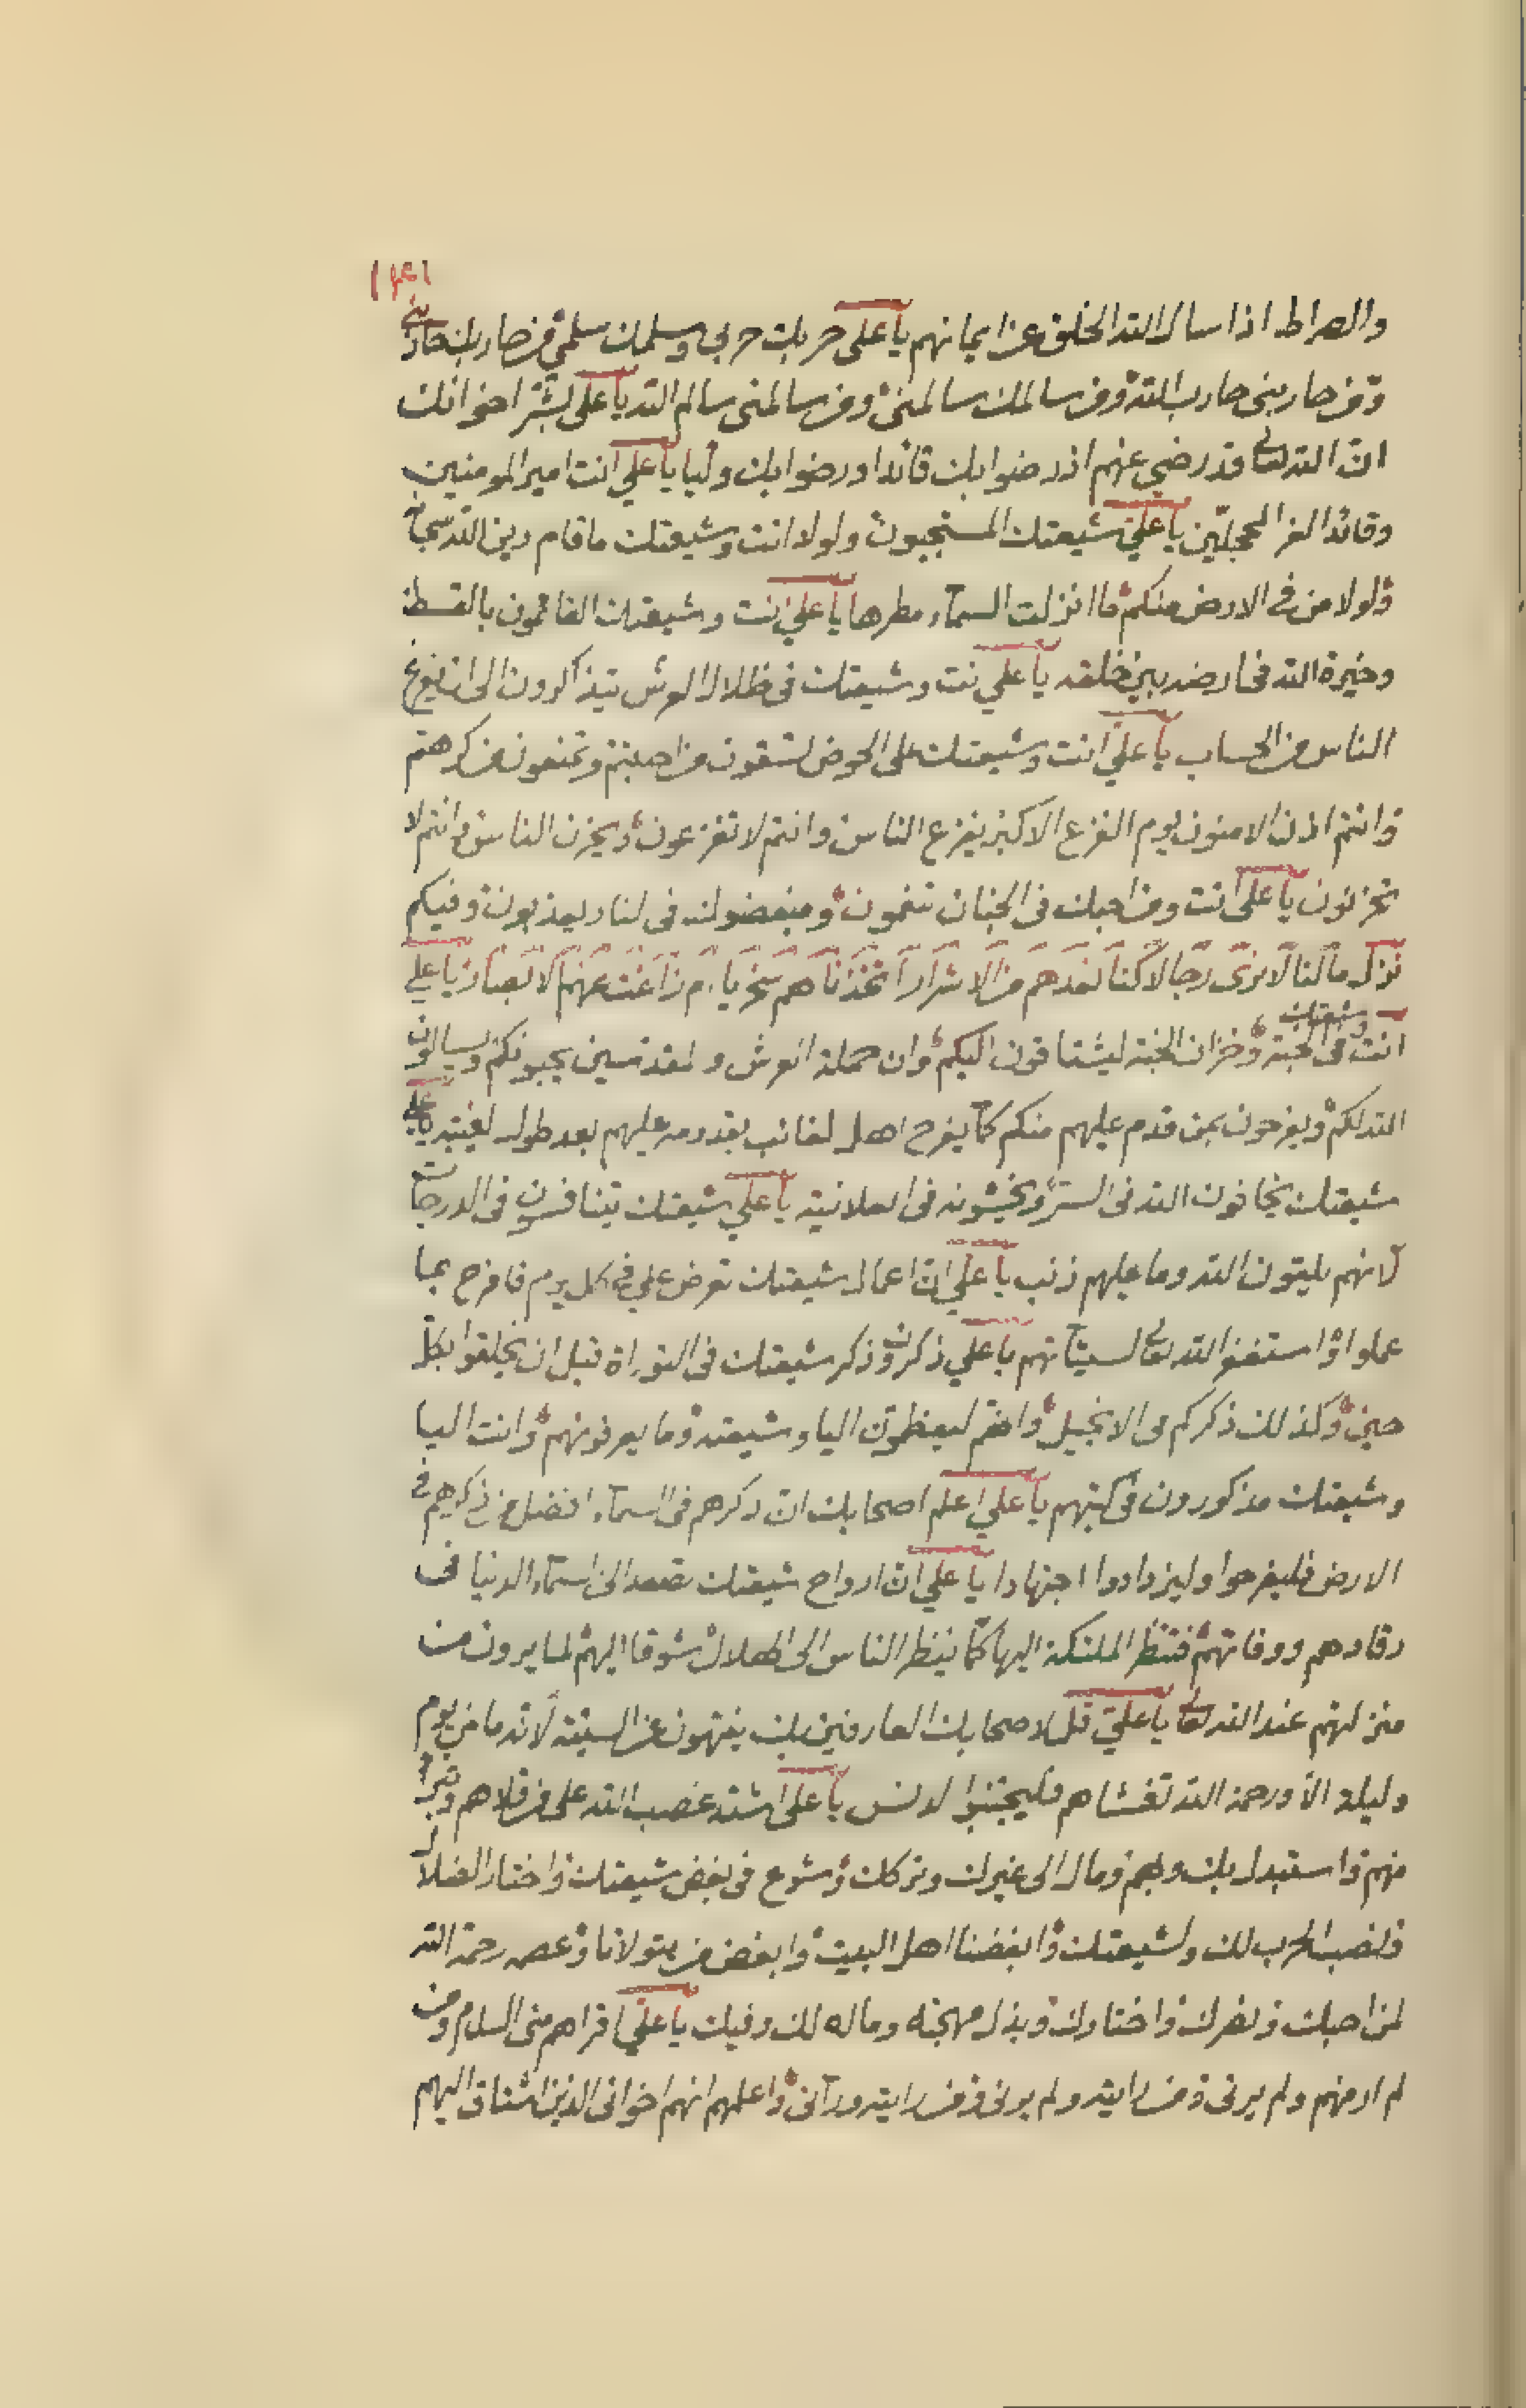 والصراط اذا سال الله الخلق عن ايمانهم يا على حربك حربى وسلمك سلمى فمن حاربك حاربنى
ومن حاربنى حارب الله ومن سالمك سالمنى ومن سالمنى سالم الله يا على بشر اخوانك
ان الله تعالى قد رضى عنهم اذ رضوا بك قائدا ورضوا بك وليا يا على انت امير المومنين
وقائد الغر المحجلين يا على شيعتك المنتجبون ولولا انت وشيعتك ما قام دين الله سبحانه
ولولا من فى الارض منكم ما انزلت السماء مطرها يا على انت وشيعتك القائمون بالقسط
وخيرة الله فى ارضه بين خلقه يا على انت وشيعتك فى ظلال العرش تتذاكرون الى ان يفرغ
الناس من الحساب يا على انت وشيعتك على الحوض تسقون من احببتم وتمنعون من كرهتم
وانتم اذن الامنون يوم الفزع الاكبر يفزع الناس وانتم لا تفزعون ويحزن الناس وانتم لا
تحزنون يا على انت ومن احبك فى الجنان تنعمون ومبغضوك فى النار يعذبون وفيكم
نزل ما لنا لا نرى رجالا كنا نعدهم من الاشرار اتخذناهم سخريا ام زاغت عنهم الابصار يا على
انت وشيعتك فى الجنة وخزان الجنة ليشتاقون اليكم وان حملة العرش والمقدسين يحبونكم ويسالون
الله لكم ويفرحون بمن قدم عليهم منكم كما يفرح اهل الغائب بقدومه عليهم بعد طول الغيبة يا على
شيعتك يخافون الله فى السر ويخشونه فى العلانية يا على شيعتك يتنافسون فى الدرجات
لانهم يلقون الله وما عليهم ذنب يا على ان اعمال شيعتك تعرض على فى كل يوم فافرح بما
عملوا واستغفر الله تعالى لسيئاتهم يا على ذكرك وذكر شيعتك فى التوراة قبل ان يخلقوا بكل
حين وكذلك ذكركم فى الانجيل وانهم ليعظمون اليا وشيعته وما يعرفونهم وانت اليا
وشيعتك مذكورون فى كتبهم يا على اعلم اصحابك ان ذكرهم فى السماء افضل من ذكرهم فى
الارض فليفرحوا وليزدادوا اجتهادا يا على ان ارواح شيعتك تصعد الى السماء الدنيا فى
رقادهم ووفاتهم فتنظر الملئكة اليها كما ينظر الناس الى الهلال شوقا اليهم لما يرون من
منزلتهم عند الله تعالى يا على قل لاصحابك العارفين بك ينتهون عن السيئة لانه ما من يوم
وليلة الا ورحمة الله تغشاهم فليجتنبوا الدنس يا على اشتد غضب الله على من قلاهم وتبرا
منهم واستبدل بك وبهم ومال الى غيرك وتركك وشرع فى بغض شيعتك واختار الضلال
ونصب الحرب لك ولشيعتك وابغضنا اهل البيت وابغض من يتولانا رحمة الله
لمن احبك ونصرك واختارك وبذل مهجته وماله لك وفيك يا على اقراهم منى السلام ومن
لم ار منهم ولم يرنى ومن رايته ولم يرنى ومن رايته ورآنى واعلمهم انهم اخوانى الذين اشتاق اليهم